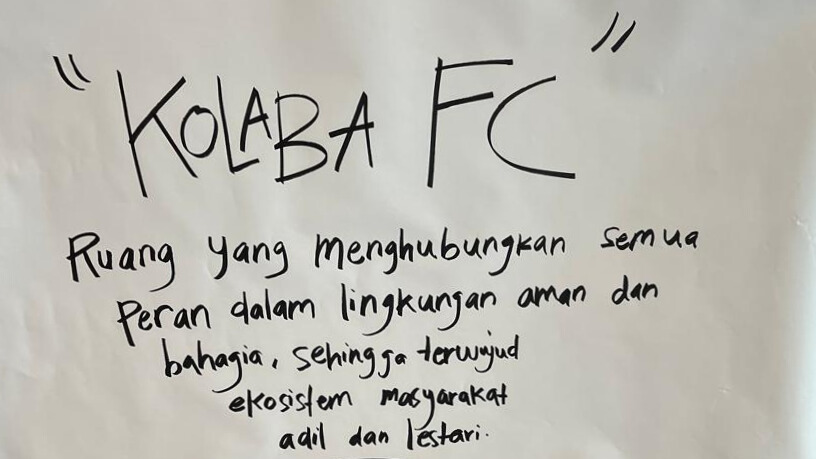 "KOLABA FC"
Ruang yang menghubungkan semua
peran dalam lingkungan aman dan
bahagia, sehingga terwujud
ekosistem masyarakat
adil dan lestari.